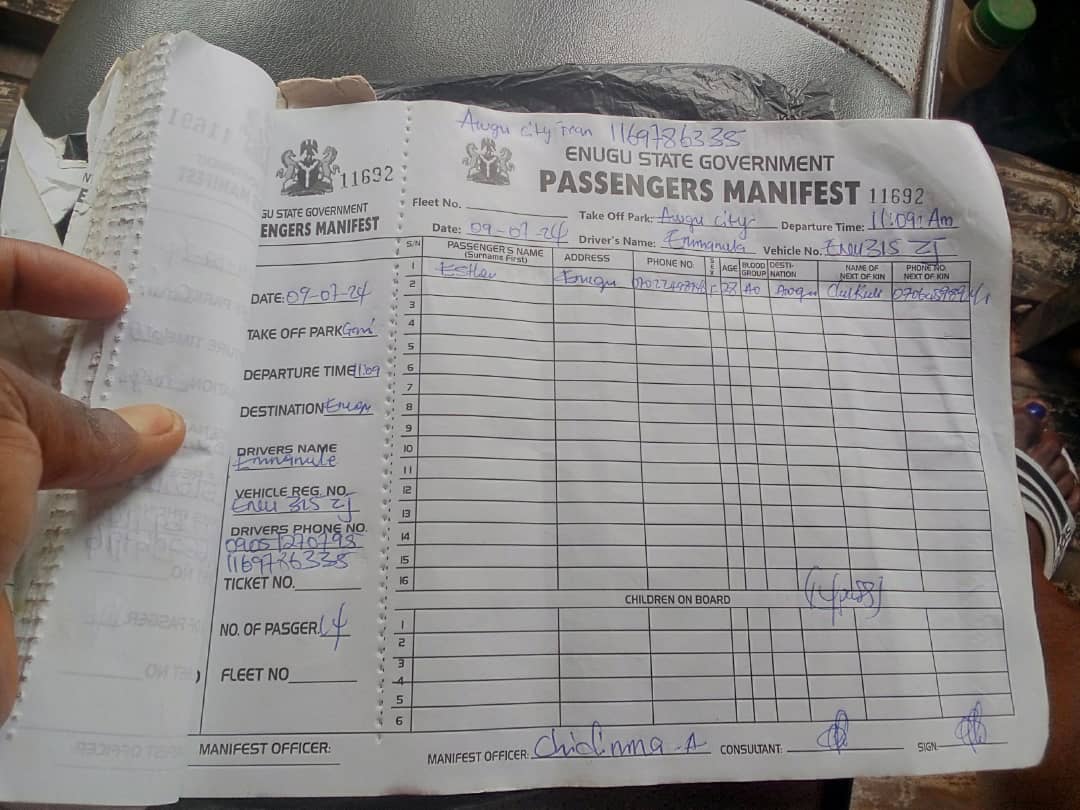 Awgu city Tran 1169786335
ENUGU STATE GOVERNMENT
PASSENGERS MANIFEST 11692
Fleet No. Take Off Park: Awgu city Departure Time: 11:09: Am
Date: 09-07-24 Driver's Name: Emmanule Vehicle No. Eneu 315 ZJ
S/N PASSENGER'S NAME (Surname First) ADDRESS PHONE NO: SEX AGE BLOOD GROUP DESTI-NATION NAME OF NEXT OF KIN PHONE NO. NEXT OF KIN
1 Esther Enugu 28 AO Awgu
2
3
4
5
6
7
8
9
10
11
12
13
14
15
16
CHILDREN ON BOARD
1
2
3
4
5
6
MANIFEST OFFICER: Chidinma .A CONSULTANT: SIGN:
11692
GU STATE GOVERNMENT
ENGERS MANIFEST
DATE: 09-07-24
TAKE OFF PARK
DEPARTURE TIME 11:09
DESTINATION Enugu
DRIVERS NAME
Emmanule
VEHICLE REG. NO.
Eneu 315 ZJ
DRIVERS PHONE NO.
09051270798
1169786335
TICKET NO.
NO. OF PASGER. 14
FLEET NO
MANIFEST OFFICER: